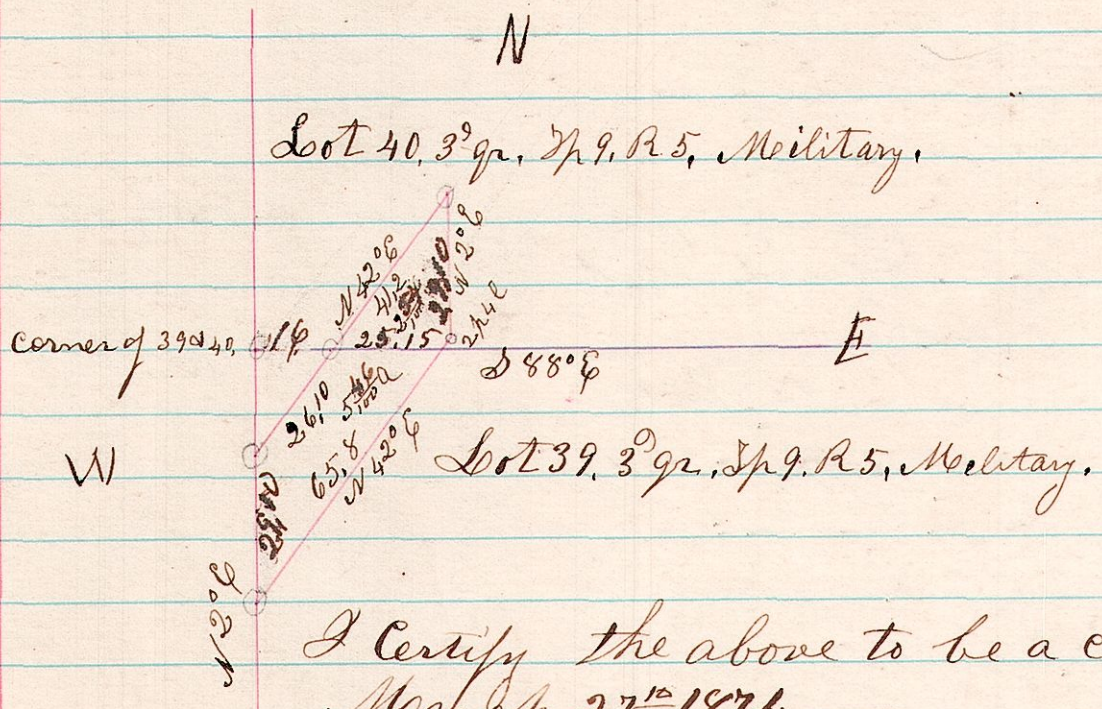 N
Lot 40, 3d qr. Tp 9. R 5, Military.
N 42° E
41,2
N 2° E
2p 4l
corner of 39 & 40,
25,15
E
S 88° E
26,10
5 46/100 a
65,8
N 42° E
W
Lot 39, 3d qr. Tp 9. R 5, Military.
N 2° E
I Certify the above to be a c